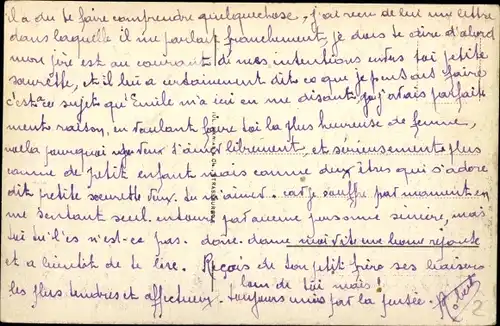 il a du te faire comprendre quelquechose, j'ai reçu de lui une lettre
dans laquelle il me parlait franchement, je dois te dire d'abord
mon père est au courant de mes intentions envers toi petite
sœurette, et il lui a certainement dit ce que je pensait faire
c'est à ce sujet qu'Emile m'a écri en me disant que j'avais parfaite
ment raison, en voulant faire toi la plus heureuse de femme,
voilà pourquoi je veux t'aimer librement, et sérieusement plus
comme de petit enfant mais comme deux êtres qui s'adore
dit petite sœurette veux-tu m'aimer. car je souffre par moment en
me sentant seul entouré par aucune personne sincère, mais
toi tu l'es n'est-ce pas. donc donne moi vite une bonne réponse
et a bientôt de te lire. Reçois de ton petit frère ses baisers
les plus tendres et affectueux. toujours unis par la pensée.
loin de toi mais!
Robert
2